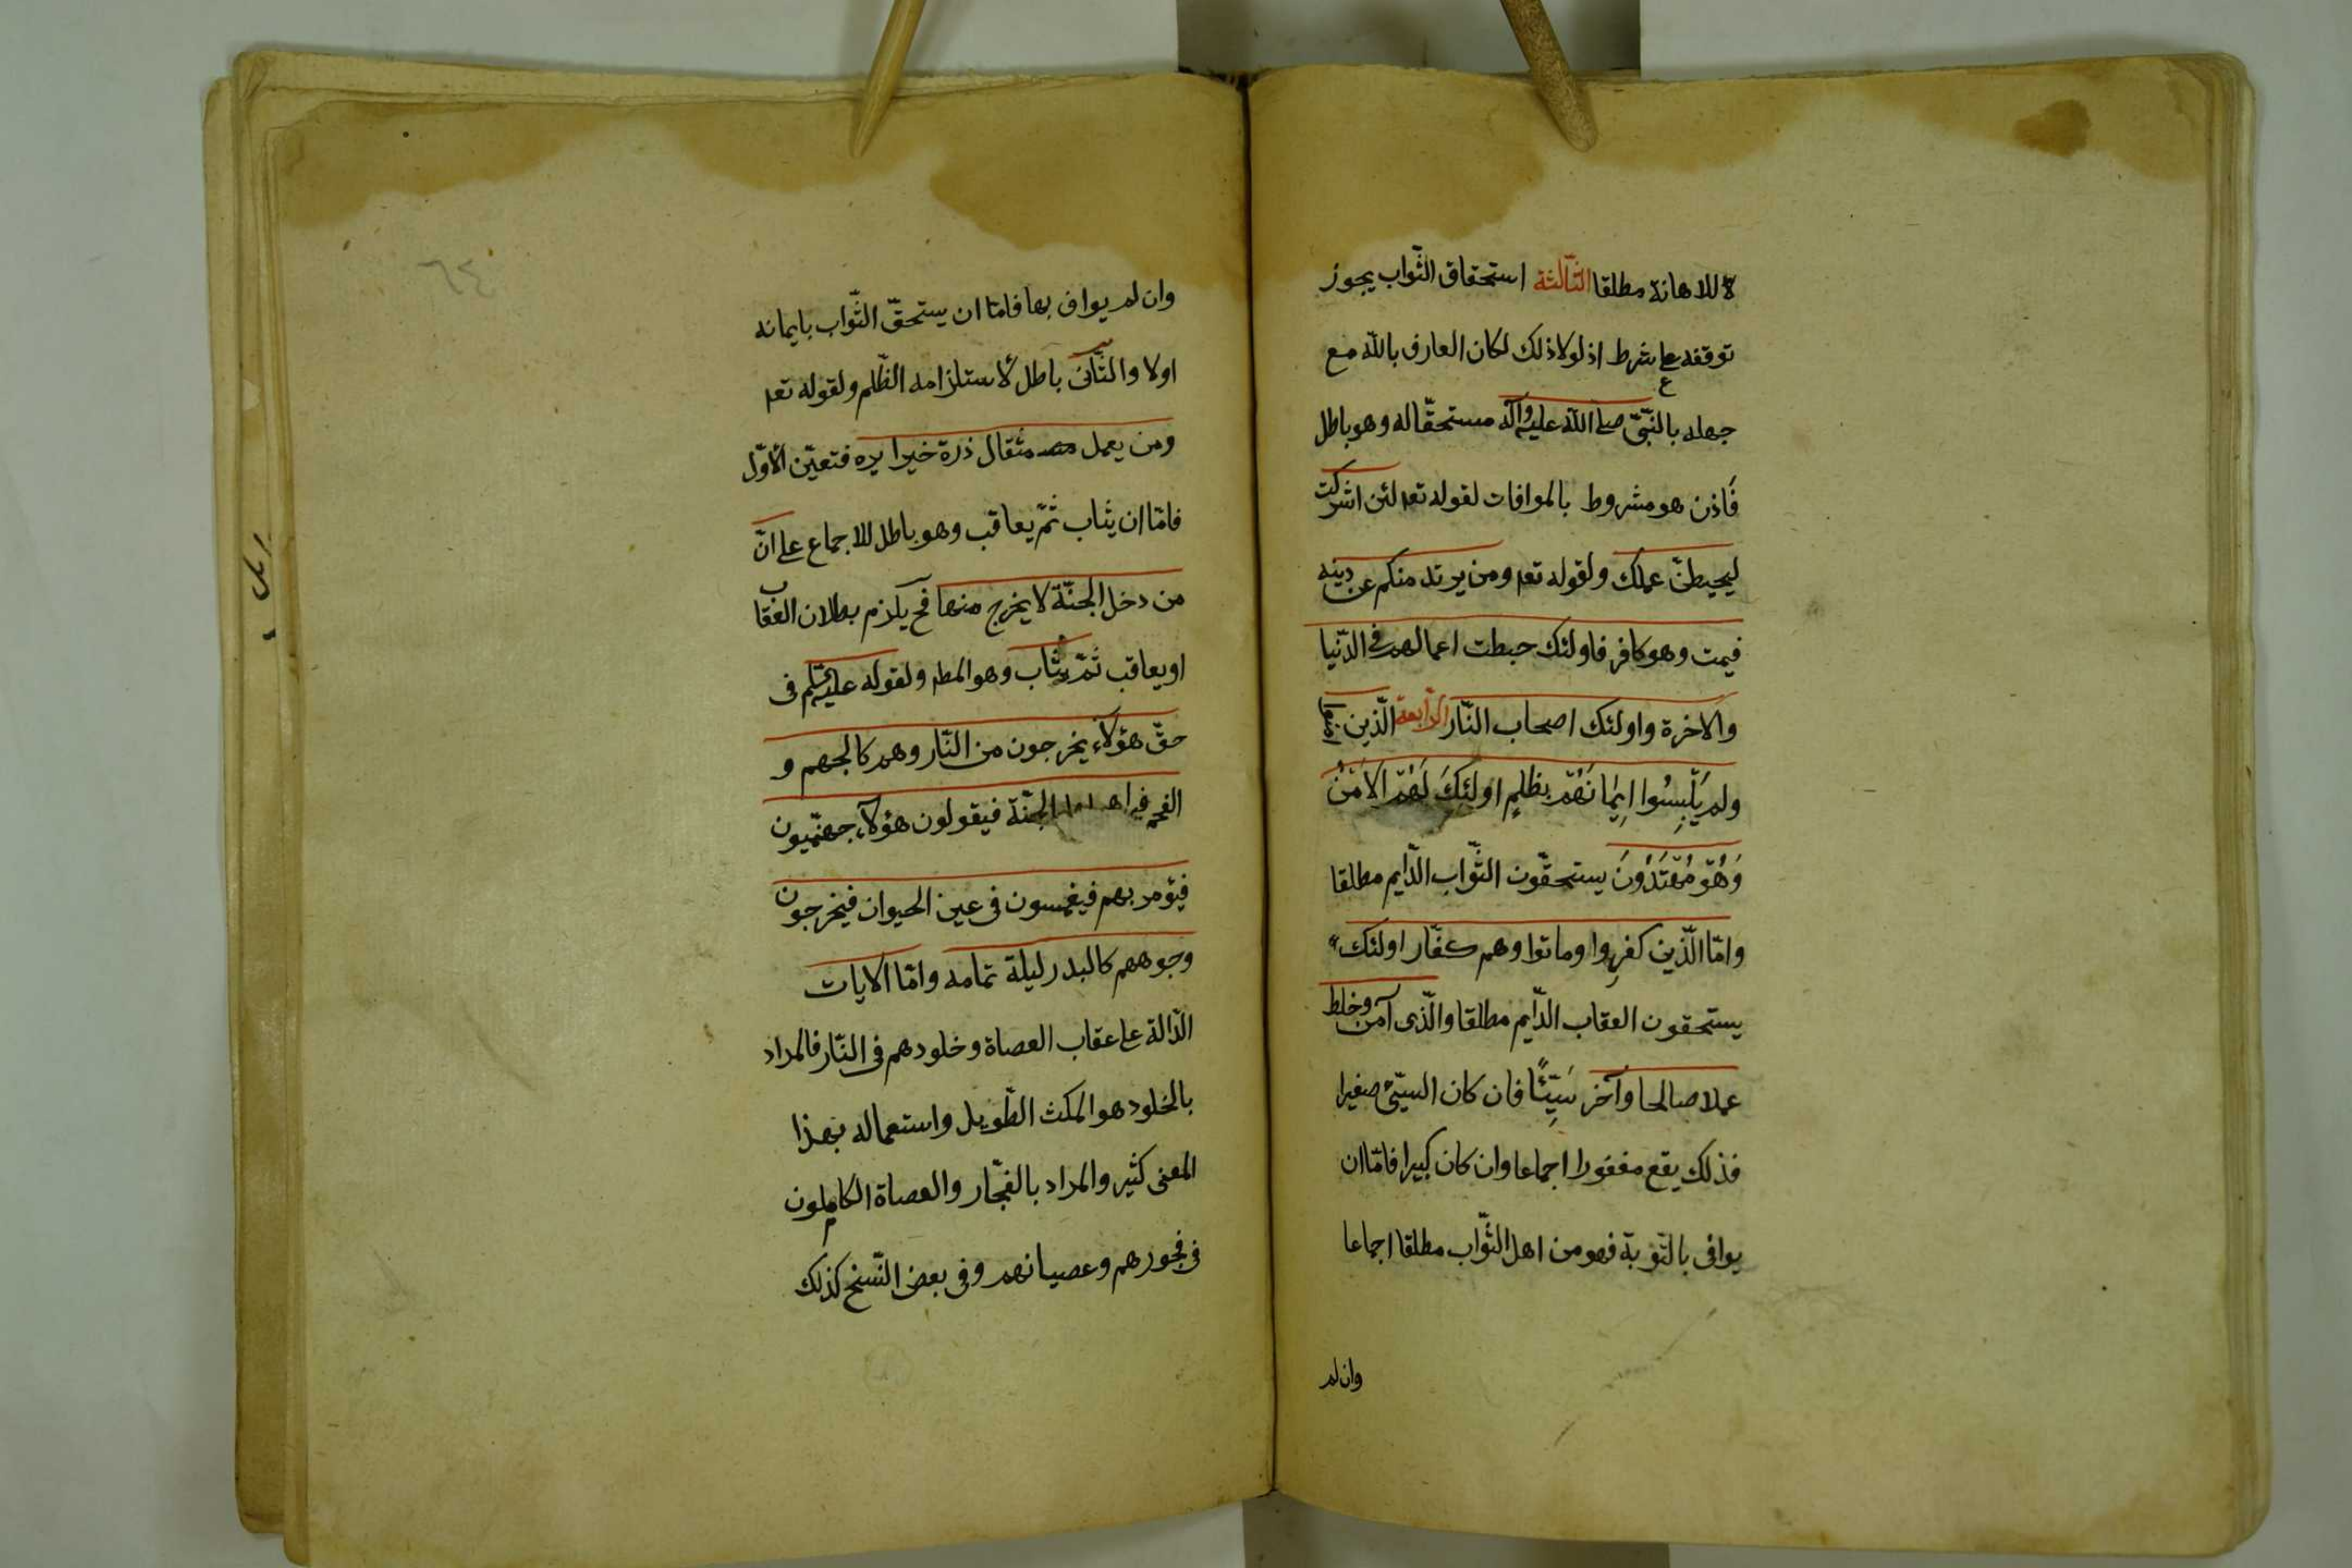 للاهانة مطلقا الثّالثة استحقاق الثّواب يجوز
توقفه على شرط اذ لولا ذلك لكان العارف بالله مع
جهله بالنّبيّ صلى الله عليه وآله مستحقّا له وهو باطل
فاذن هو مشروط بالموافات لقوله تعه لئن اشركت
ليحبطنّ عملك ولقوله تعه ومن يرتد منكم عن دينه
فيمت وهو كافر فاولئك حبطت اعمالهم فى الدّنيا
والاخرة واولئك اصحاب النّار الرّابعة الّذين
ولم يَلْبِسُوا اِيمٰانَهُمْ بظلمٍ اولئِكَ لَهُمُ الاَمْنُ
وَهُمْ مُهْتَدُونَ يستحقّون الثّواب الدّايم مطلقا
وامّا الّذين كفروا وماتوا وهم كفّار اولئك
يستحقون العقاب الدّايم مطلقا والّذى آمن وخلط
عملا صالحا وآخر سَيِّئًا فان كان السيّئ صغيرا
فذلك يقع مغفورا اجماعا وان كان كبيرا فامّا ان
يوافى بالتّوبة فهو من اهل الثّواب مطلقا اجماعا
وان لم
٦٤
وان لم يواف بها فامّا ان يستحقّ الثّواب بايمانه
اولا والثّانى باطل لاستلزامه الظّلم ولقوله تعه
ومن يعمل مثقال ذرة خيرا يره فتعيّن الاوّل
فامّا ان يثاب ثمّ يعاقب وهو باطل للاجماع على انّ
من دخل الجنّة لا يخرج منها فح يلزم بطلان العقاب
او يعاقب ثمّ يثاب وهو المطه ولقوله عليه السّلم فى
حقّ هؤلاء يخرجون من النّار وهم كالجهم و
الفحم فيراهم اهل الجنّة فيقولون هؤلاء جهنّميون
فيؤمر بهم فيغمسون فى عين الحيوان فيخرجون
وجوههم كالبدر ليلة تمامه وامّا الايات
الدّالة على عقاب العصاة وخلودهم فى النّار فالمراد
بالخلود هو المكث الطّويل واستعماله بهذا
المعنى كثير والمراد بالفجّار والعصاة الكاملون
فى فجورهم وعصيانهم وفى بعض النّسخ كذلك